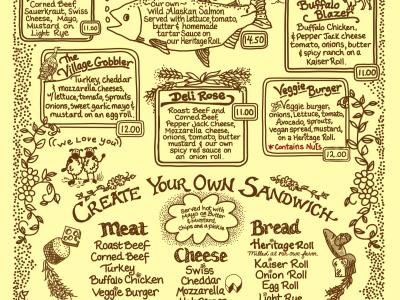 Corned Beef,
Sauerkraut, Swiss
Cheese, Mayo,
Mustard on
Light Rye
11.00
our own
Wild Alaskan Salmon
Served with Lettuce, tomato,
butter & homemade
tartar Sauce on
our Heritage Roll.
14.50
Buffalo
Blazer
Buffalo Chicken,
& Pepper Jack cheese
tomato, onions, butter
& spicy ranch on a
Kaiser Roll.
11.00
The
Village Gobbler
Turkey, cheddar
mozzarella cheeses,
w/lettuce, tomato, Sprouts
onions, sweet garlic mayo &
mustard on an egg roll.
12.00
Deli Rose
11.00
Roast Beef and
Corned Beef,
Pepper Jack Cheese,
Mozzarella, cheese,
onions, tomato, butter
mustard & our own
spicy red sauce on
an onion roll.
Veggie Burger
Veggie burger,
onions, lettuce, tomato,
Avocado, sprouts,
vegan spread, mustard,
on a Heritage Roll.
* Contains Nuts
12.00
We love you
Create Your Own Sandwich
Served hot with
Mayo or Butter
& Mustard,
Chips and a pickle
Meat
Roast Beef
Corned Beef
Turkey
Buffalo Chicken
Veggie Burger
Cheese
Swiss
Cheddar
Mozzarella
Bread
Heritage Roll
Milled at our own farm
Kaiser Roll
Onion Roll
Egg Roll
Light Rye